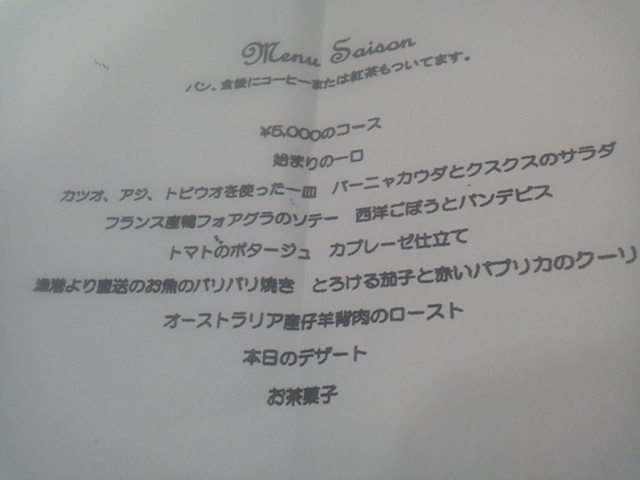 Menu Saison
パン、食後にコーヒーまたは紅茶もついてます。
¥5,000のコース
始まりの一口
カツオ、アジ、トビウオを使った一皿 バーニャカウダとクスクスのサラダ
フランス産鴨フォアグラのソテー 西洋ごぼうとパンデピス
トマトのポタージュ カプレーゼ仕立て
漁港より直送のお魚のパリパリ焼き とろける茄子と赤いパプリカのクーリ
オーストラリア産仔羊背肉のロースト
本日のデザート
お茶菓子